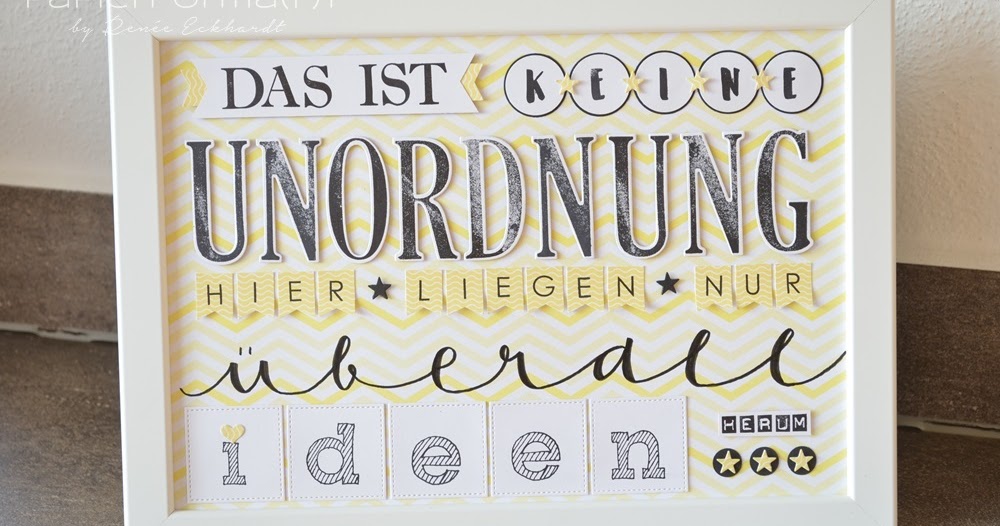 by Renée Eckhardt
DAS IST KEINE
UNORDNUNG
HIER ★ LIEGEN ★ NUR
überall
ideen
HERUM